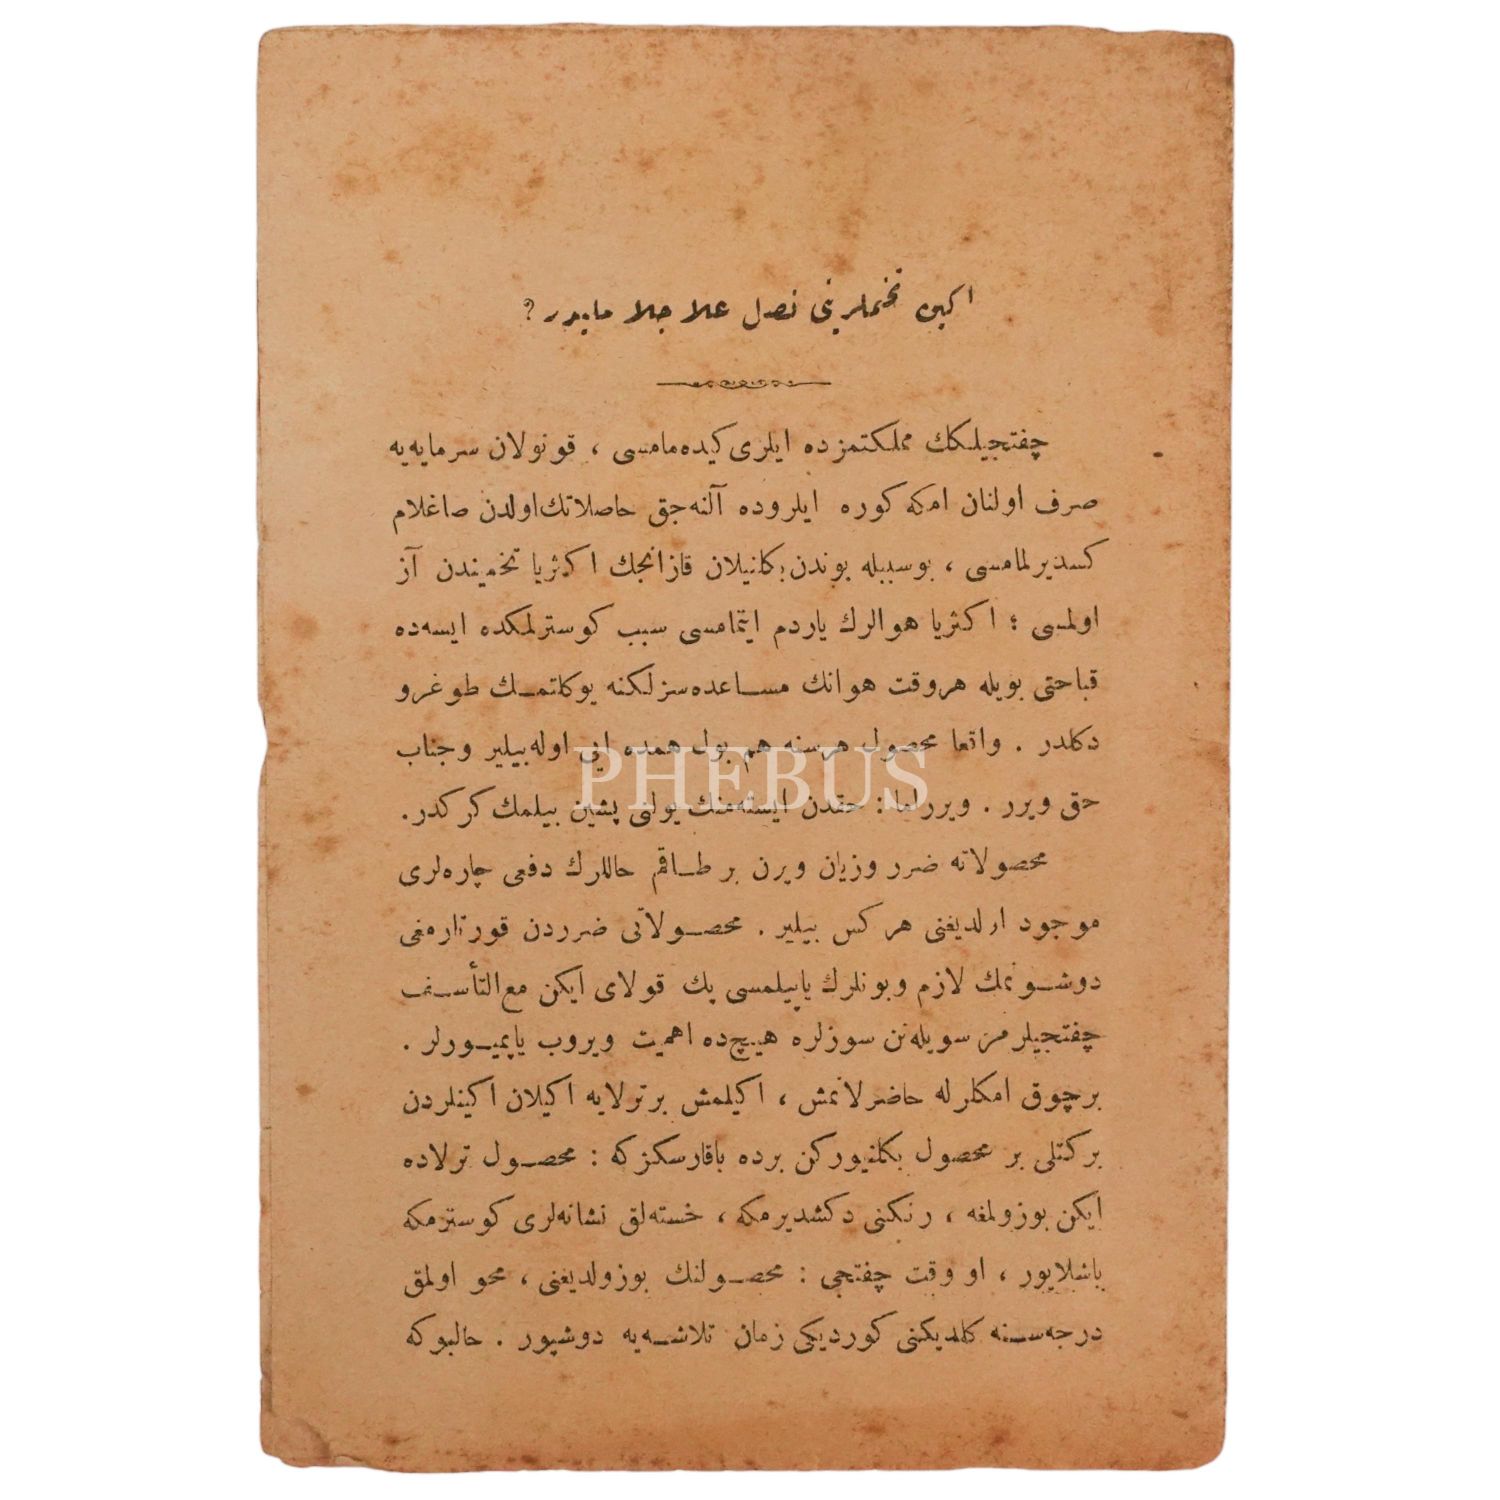 اكين تخملرينى نصل علاجلامايدر ؟
چفتجيلكك مملكتمزده ايلرى كيده‌مامسى ، قونولان سرمايه‌يه
صرف اولنان امكه كوره ايلروده آلنه‌جق حاصلاتك اولدن صاغلام
كسديرلمامسى ، بوسببله بوندن بكلنيلان قازانجك اكثريا تخميندن آز
اولمسى ؛ اكثريا هوالرك ياردم ايتمامسى سبب كوسترلمكده ايسه‌ده
قباحتى بويله هروقت هوانك مساعده‌سزلكنه يوكلتمك طوغرو
دكلدر . واقعا محصول هرسنه هم بول همده ايى اوله‌بيلير وجناب
حق ويرر . ويرر اما : حقدن ايسته‌منك يولنى پشين بيلمك كركدر .
محصولاته ضرر وزيان ويرن بر طاقم حاللرك دفعى چاره‌لرى
موجود اولديغنى هركس بيلير . محصولاتى ضرردن قورتارمغى
دوشونمك لازم وبونلرك ياپيلمسى پك قولاى ايكن مع‌التأسف
چفتجيلرمز سويله‌نن سوزلره هيچ‌ده اهميت ويروب ياپميورلر .
برچوق امكلرله حاضرلانمش ، اكيلمش برترلايه اكيلان اكينلردن
بركتلى بر محصول بكلنيوركن برده باقارسكزكه : محصول ترلاده
ايكن بوزولمغه ، رنكنى دكشديرمكه ، خسته‌لق نشانه‌لرى كوسترمكه
باشلايور ، او وقت چفتجى : محصولنك بوزولديغنى ، محو اولمق
درجه‌سنه كلديكنى كورديكى زمان تلاشه‌يه دوشيور . حالبوكه
PHEBUS